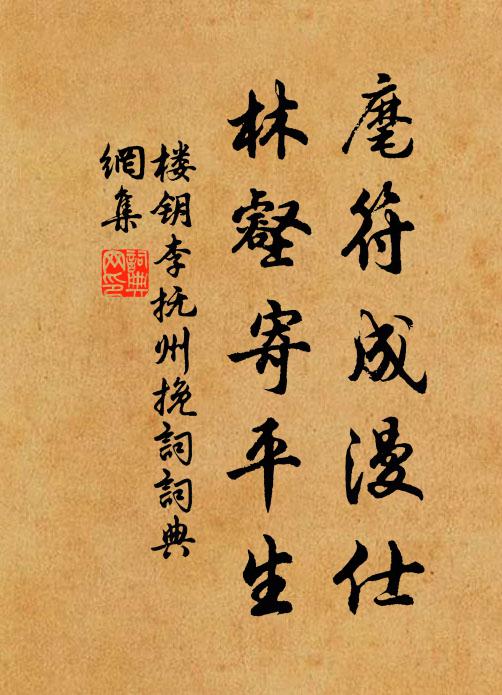 麾符成漫仕
林壑寄平生
楼钥李抚州挽詞詞典
網集
詞典
网印